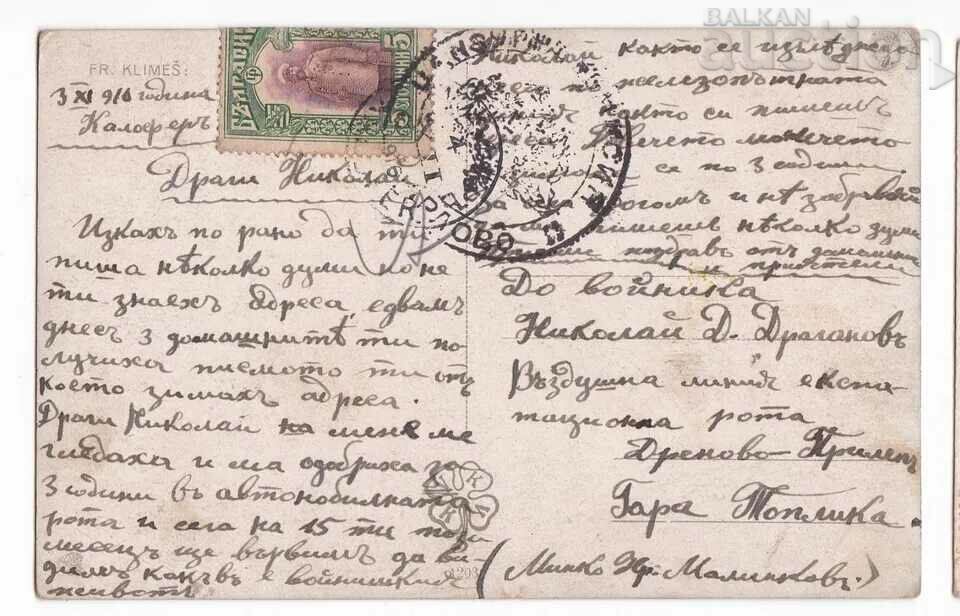 BALKAN
auction
FR. KLIMEŠ:
3 XI 916 година
Калоферъ
Драги Николай
Искахъ по рано да ти
пиша нѣколко думи но не
ти знаехъ адреса, едвамъ
днесъ 3 домашнитѣ ти по
лучиха писмото ти отъ
което зимахъ адреса.
Драги Николай на мене ме
гледаха и ма одобриха за
3 години въ автонобилната
рота и сега на 15 ти този
месецъ ще вървимъ да ви-
димъ какъвъ е войнишкия
животъ
Николай както се изглѣднева
по железопътната
както си пишешъ
момчето
се по 3 години
за сега и нѣ забравяй
пишешъ нѣколко думи
поздравъ отъ домашни
и приятели
До войника
Николай Д. Драгановъ
Въздушна линия експа-
тационна рота
Дреново-Прилепъ
Гара Топлика.
(Минко Хр. Малинковъ.)
1203